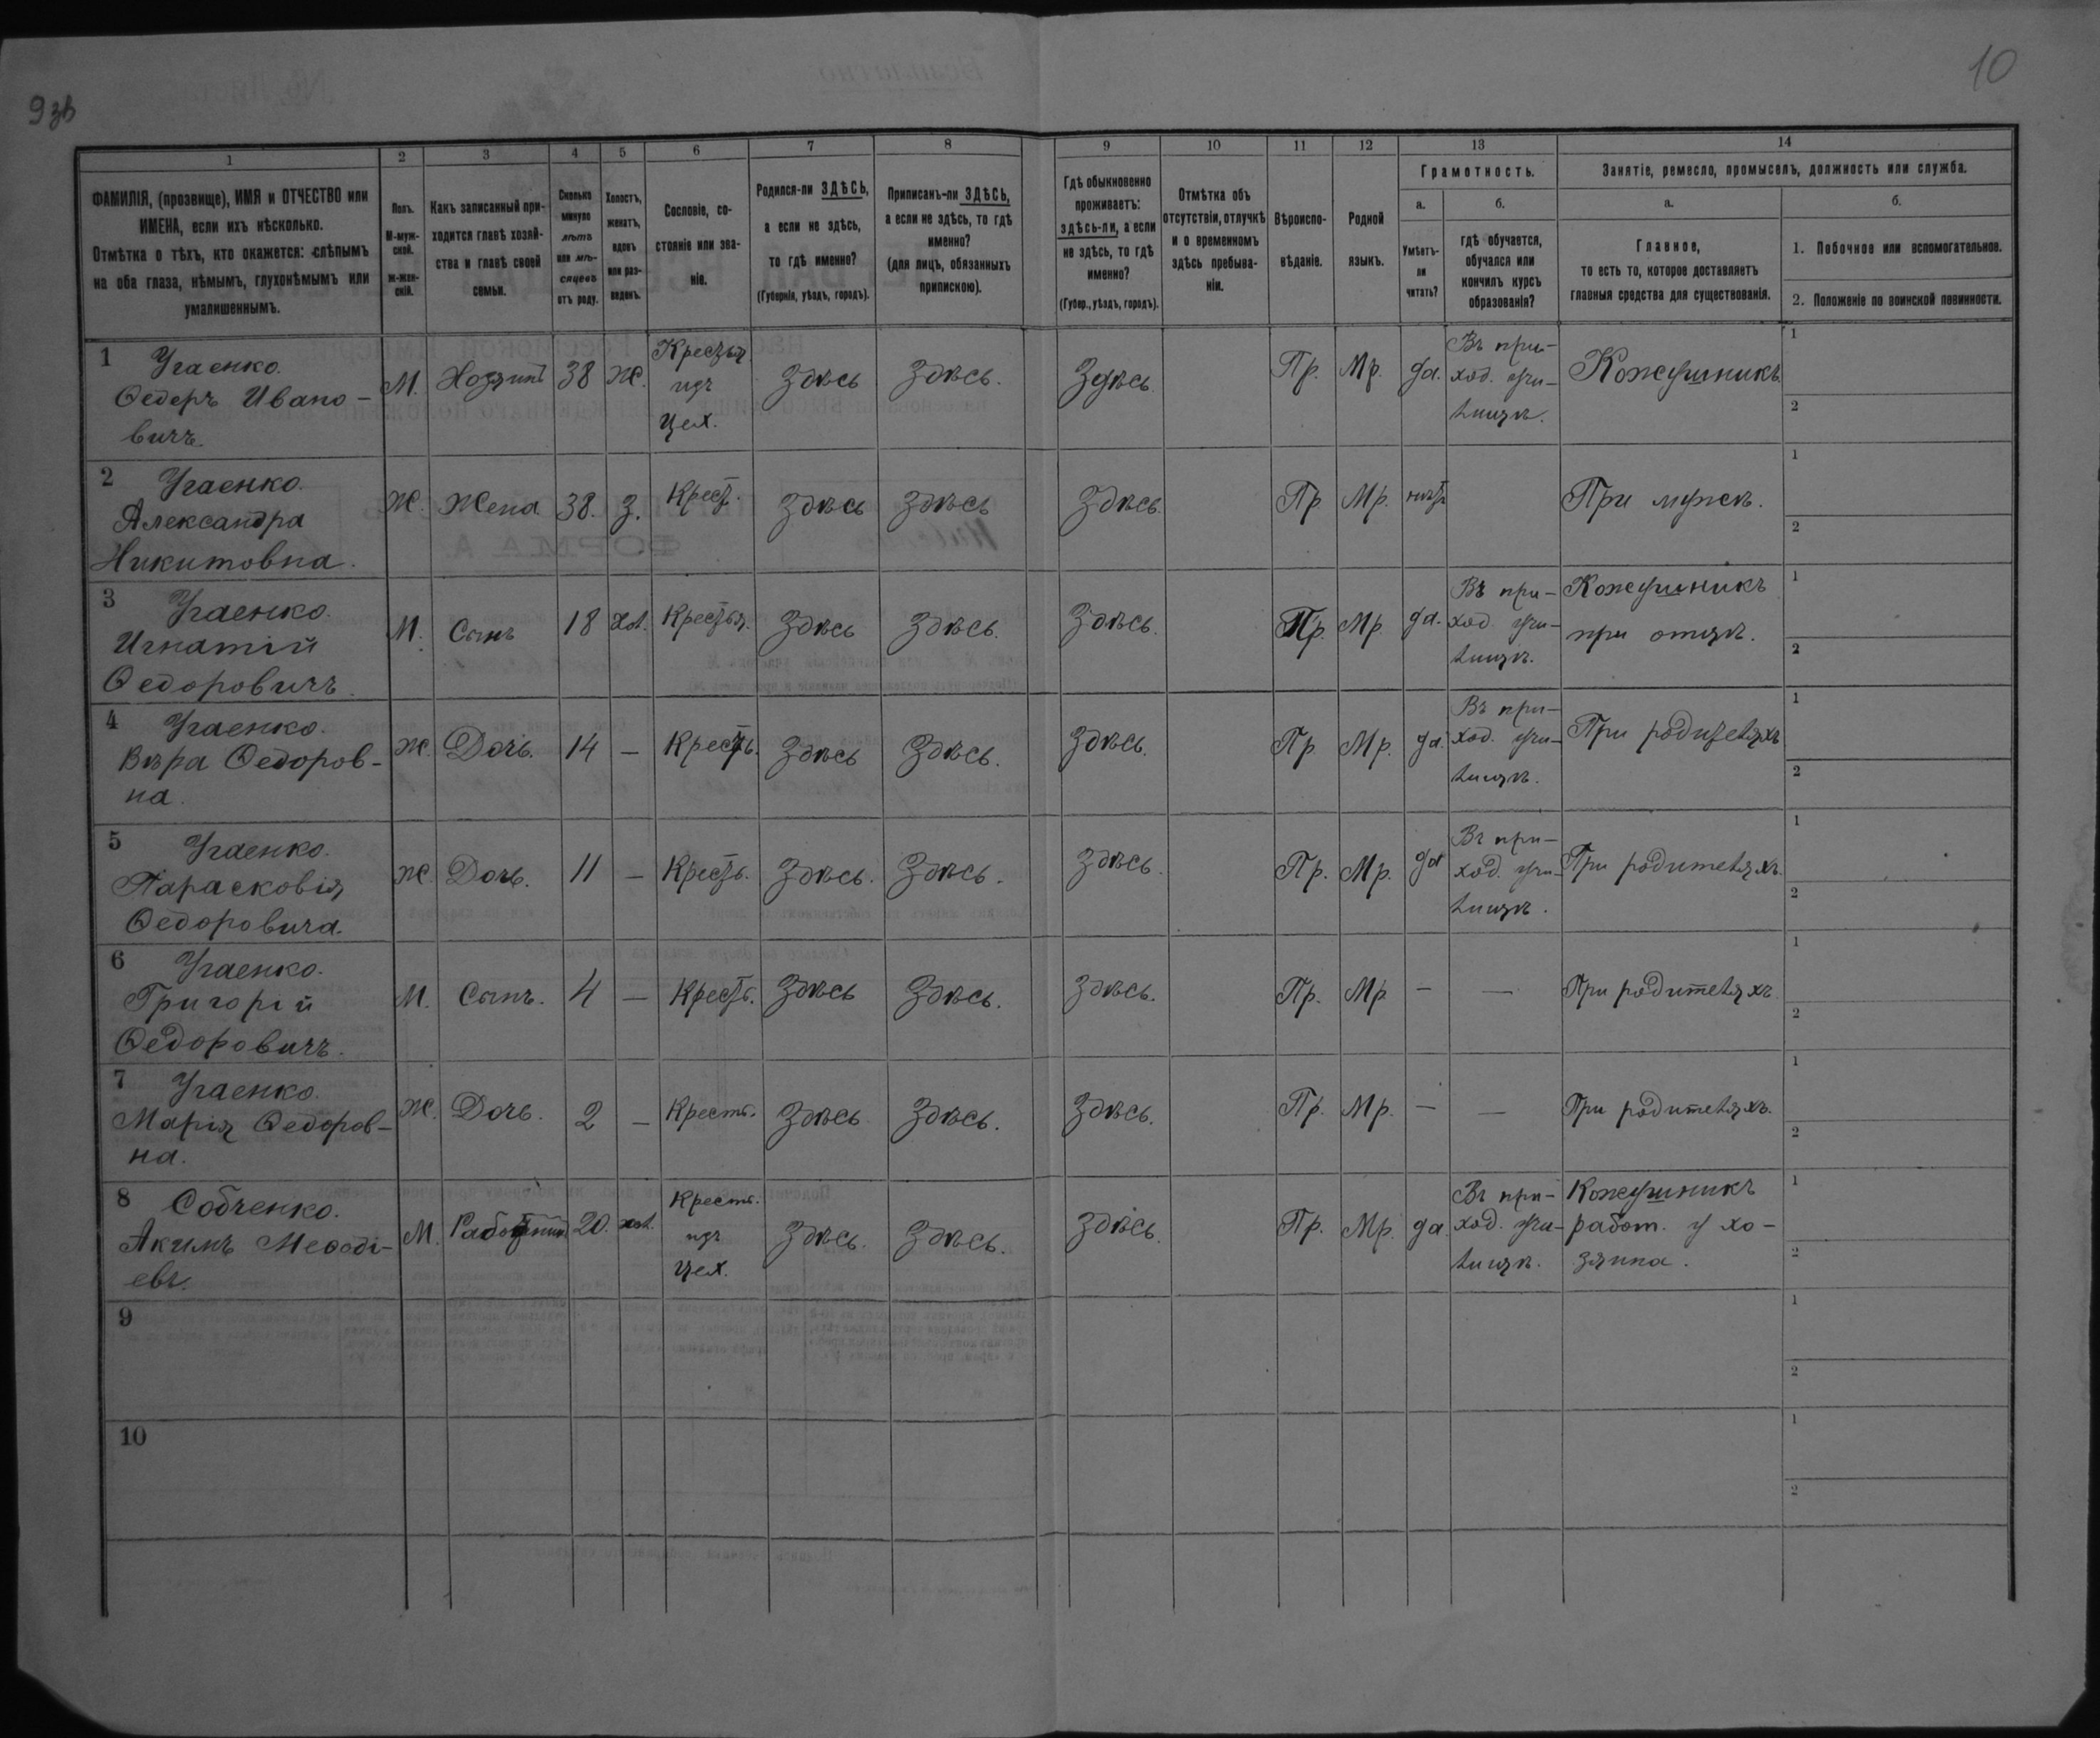 9 зв
10
1
2
3
4
5
6
7
8
9
10
11
12
13
14
ФАМИЛІЯ, (прозвище), ИМЯ и ОТЧЕСТВО или
ИМЕНА, если ихъ нѣсколько.
Отмѣтка о тѣхъ, кто окажется: слѣпымъ
на оба глаза, нѣмымъ, глухонѣмымъ или
умалишеннымъ.
Полъ.
М-муж-
ской.
Ж-жен-
скій.
Какъ записанный при-
ходится главѣ хозяй-
ства и главѣ своей
семьи.
Сколько
минуло
лѣтъ
или мѣ-
сяцевъ
отъ роду.
Холостъ,
женатъ,
вдовъ
или раз-
веденъ.
Сословіе, со-
стояніе или зва-
ніе.
Родился-ли ЗДѢСЬ,
а если не здѣсь,
то гдѣ именно?
(Губернія, уѣздъ, городъ).
Приписанъ-ли ЗДѢСЬ,
а если не здѣсь, то гдѣ
именно?
(для лицъ, обязанныхъ
припискою).
Гдѣ обыкновенно
проживаетъ:
здѣсь-ли, а если
не здѣсь, то гдѣ
именно?
(Губер., уѣздъ, городъ).
Отмѣтка объ
отсутствіи, отлучкѣ
и о временномъ
здѣсь пребыва-
ніи.
Вѣроиспо-
вѣданіе.
Родной
языкъ.
Грамотность.
а.
Умѣетъ-
ли
читать?
б.
гдѣ обучается,
обучался или
кончилъ курсъ
образованія?
Занятіе, ремесло, промыселъ, должность или служба.
а.
Главное,
то есть то, которое доставляетъ
главныя средства для существованія.
б.
1. Побочное или вспомогательное.
2. Положеніе по воинской повинности.
1 Угаенко.
Ѳедоръ Ивано-
вичъ.
М. Хозяинъ 38 Ж.
Крестья.
изъ
цех.
Здѣсь Здѣсь. Здѣсь. Пр. Мр. да.
Въ при-
ход. учи-
лищѣ.
Кожевникъ.
1
2
2 Угаенко.
Александра
Никитовна.
Ж. Жена 38. З. Крест. Здѣсь Здѣсь Здѣсь. Пр Мр. нѣтъ При мужѣ.
1
2
3 Угаенко.
Игнатій
Ѳедоровичъ.
М. Сынъ 18 хол. Крестья. Здѣсь Здѣсь. Здѣсь. Пр. Мр. да.
Въ при-
ход. учи-
лищѣ.
Кожевникъ
при отцѣ.
1
2
4 Угаенко.
Вѣра Ѳедоров-
на.
Ж. Дочь. 14 — Кресть. Здѣсь Здѣсь. Здѣсь. Пр Мр. да.
Въ при-
ход. учи-
лищѣ.
При родителяхъ
1
2
5 Угаенко.
Парасковія
Ѳедоровича.
Ж. Дочь. 11 — Кресть. Здѣсь. Здѣсь. Здѣсь. Пр. Мр. да
Въ при-
ход. учи-
лищѣ.
При родителяхъ.
1
2
6 Угаенко.
Григорій
Ѳедоровичъ.
М. Сынъ. 4 — Кресть. Здѣсь Здѣсь. Здѣсь. Пр. Мр — — При родителяхъ.
1
2
7 Угаенко.
Марія Ѳедоров-
на.
Ж. Дочь. 2 — Кресть. Здѣсь Здѣсь. Здѣсь. Пр. Мр. — — При родителяхъ.
1
2
8 Собченко.
Акимъ Меѳоді-
евъ.
М. 20. хол.
Кресть.
изъ
цех.
Здѣсь. Здѣсь. Здѣсь. Пр. Мр. да.
Въ при-
ход. учи-
лищѣ.
Кожевникъ
работ. у хо-
зяина.
1
2
9
1
2
10
1
2